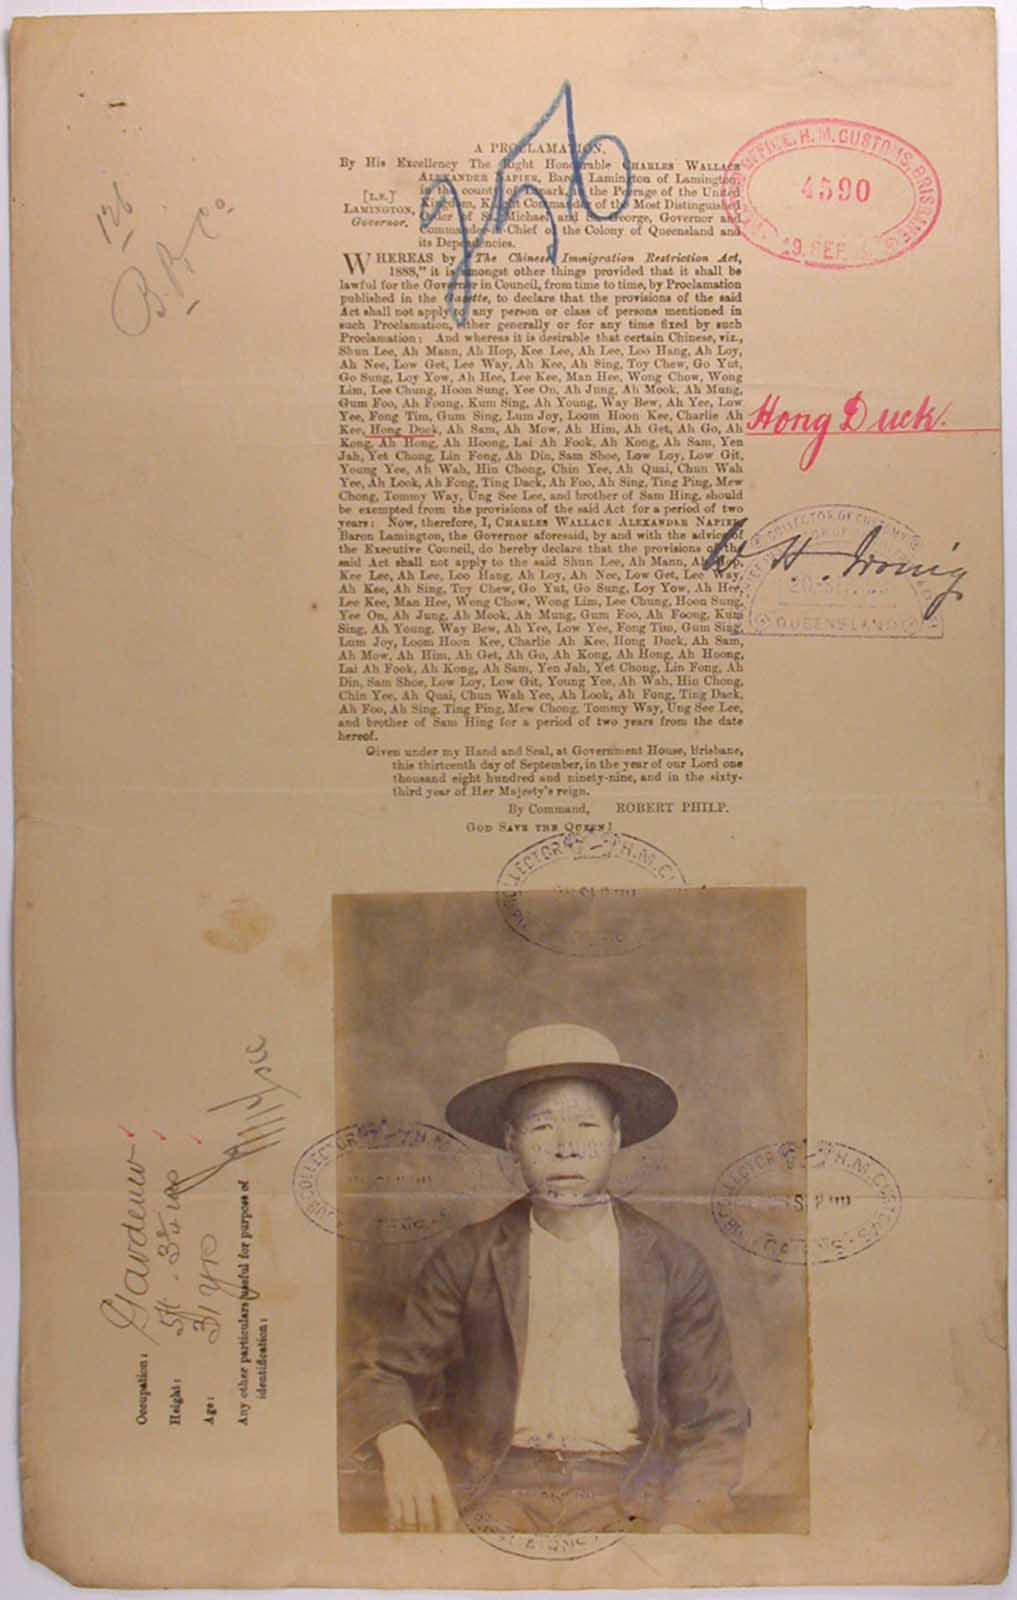 126
B. R. Co.
256
OFFICE, H. M. CUSTOMS, BRISBANE
4590
19. SEP.
A PROCLAMATION.
By His Excellency The Right Honourable CHARLES WALLACE
ALEXANDER NAPIER, Baron Lamington of Lamington,
in the county of Lanark, in the Peerage of the United
Kingdom, Knight Commander of the Most Distinguished
Order of St. Michael and St. George, Governor and
Commander-in-Chief of the Colony of Queensland and
its Dependencies.
[L.S.]
LAMINGTON,
Governor.
WHEREAS by "The Chinese Immigration Restriction Act,
1888," it is amongst other things provided that it shall be
lawful for the Governor in Council, from time to time, by Proclamation
published in the Gazette, to declare that the provisions of the said
Act shall not apply to any person or class of persons mentioned in
such Proclamation, either generally or for any time fixed by such
Proclamation: And whereas it is desirable that certain Chinese, viz.,
Shun Lee, Ah Mann, Ah Hop, Kee Lee, Ah Lee, Loo Hang, Ah Loy,
Ah Nee, Low Get, Lee Way, Ah Kee, Ah Sing, Toy Chew, Go Yut,
Go Sung, Loy Yow, Ah Hee, Lee Kee, Man Hee, Wong Chow, Wong
Lim, Lee Chung, Hoon Sung, Yee On, Ah Jung, Ah Mook, Ah Mung,
Gum Foo, Ah Foong, Kum Sing, Ah Young, Way Bew, Ah Yee, Low
Yee, Fong Tim, Gum Sing, Lum Joy, Loom Hoon Kee, Charlie Ah
Kee, Hong Duck, Ah Sam, Ah Mow, Ah Him, Ah Get, Ah Go, Ah
Kong, Ah Hong, Ah Hoong, Lai Ah Fook, Ah Kong, Ah Sam, Yen
Jah, Yet Chong, Lin Fong, Ah Din, Sam Shoe, Low Loy, Low Git,
Young Yee, Ah Wah, Hin Chong, Chin Yee, Ah Quai, Chun Wah
Yee, Ah Look, Ah Fong, Ting Dack, Ah Foo, Ah Sing, Ting Ping, Mew
Chong, Tommy Way, Ung See Lee, and brother of Sam Hing, should
be exempted from the provisions of the said Act for a period of two
years: Now, therefore, I, CHARLES WALLACE ALEXANDER NAPIER,
Baron Lamington, the Governor aforesaid, by and with the advice of
the Executive Council, do hereby declare that the provisions of the
said Act shall not apply to the said Shun Lee, Ah Mann, Ah Hop,
Kee Lee, Ah Lee, Loo Hang, Ah Loy, Ah Nee, Low Get, Lee Way,
Ah Kee, Ah Sing, Toy Chew, Go Yut, Go Sung, Loy Yow, Ah Hee,
Lee Kee, Man Hee, Wong Chow, Wong Lim, Lee Chung, Hoon Sung,
Yee On, Ah Jung, Ah Mook, Ah Mung, Gum Foo, Ah Foong, Kum
Sing, Ah Young, Way Bew, Ah Yee, Low Yee, Fong Tim, Gum Sing,
Lum Joy, Loom Hoon Kee, Charlie Ah Kee, Hong Duck, Ah Sam,
Ah Mow, Ah Him, Ah Get, Ah Go, Ah Kong, Ah Hong, Ah Hoong,
Lai Ah Fook, Ah Kong, Ah Sam, Yen Jah, Yet Chong, Lin Fong, Ah
Din, Sam Shoe, Low Loy, Low Git, Young Yee, Ah Wah, Hin Chong,
Chin Yee, Ah Quai, Chun Wah Yee, Ah Look, Ah Fong, Ting Dack,
Ah Foo, Ah Sing, Ting Ping, Mew Chong, Tommy Way, Ung See Lee,
and brother of Sam Hing for a period of two years from the date
hereof.
Given under my Hand and Seal, at Government House, Brisbane,
this thirteenth day of September, in the year of our Lord one
thousand eight hundred and ninety-nine, and in the sixty-
third year of Her Majesty's reign.
By Command, ROBERT PHILP.
GOD SAVE THE QUEEN!
Hong Duck.
COLLECTOR OF CUSTOMS
QUEENSLAND
W H Irving
SUB COLLECTOR H.M. CUSTOMS
Occupation: Gardener
Height: 5ft. 3¾ ins
Age: 31 yrs
Any other particulars useful for purpose of
identification:
SUB COLLECTOR H.M.
SUB COLLECTOR H.M. CUSTOMS